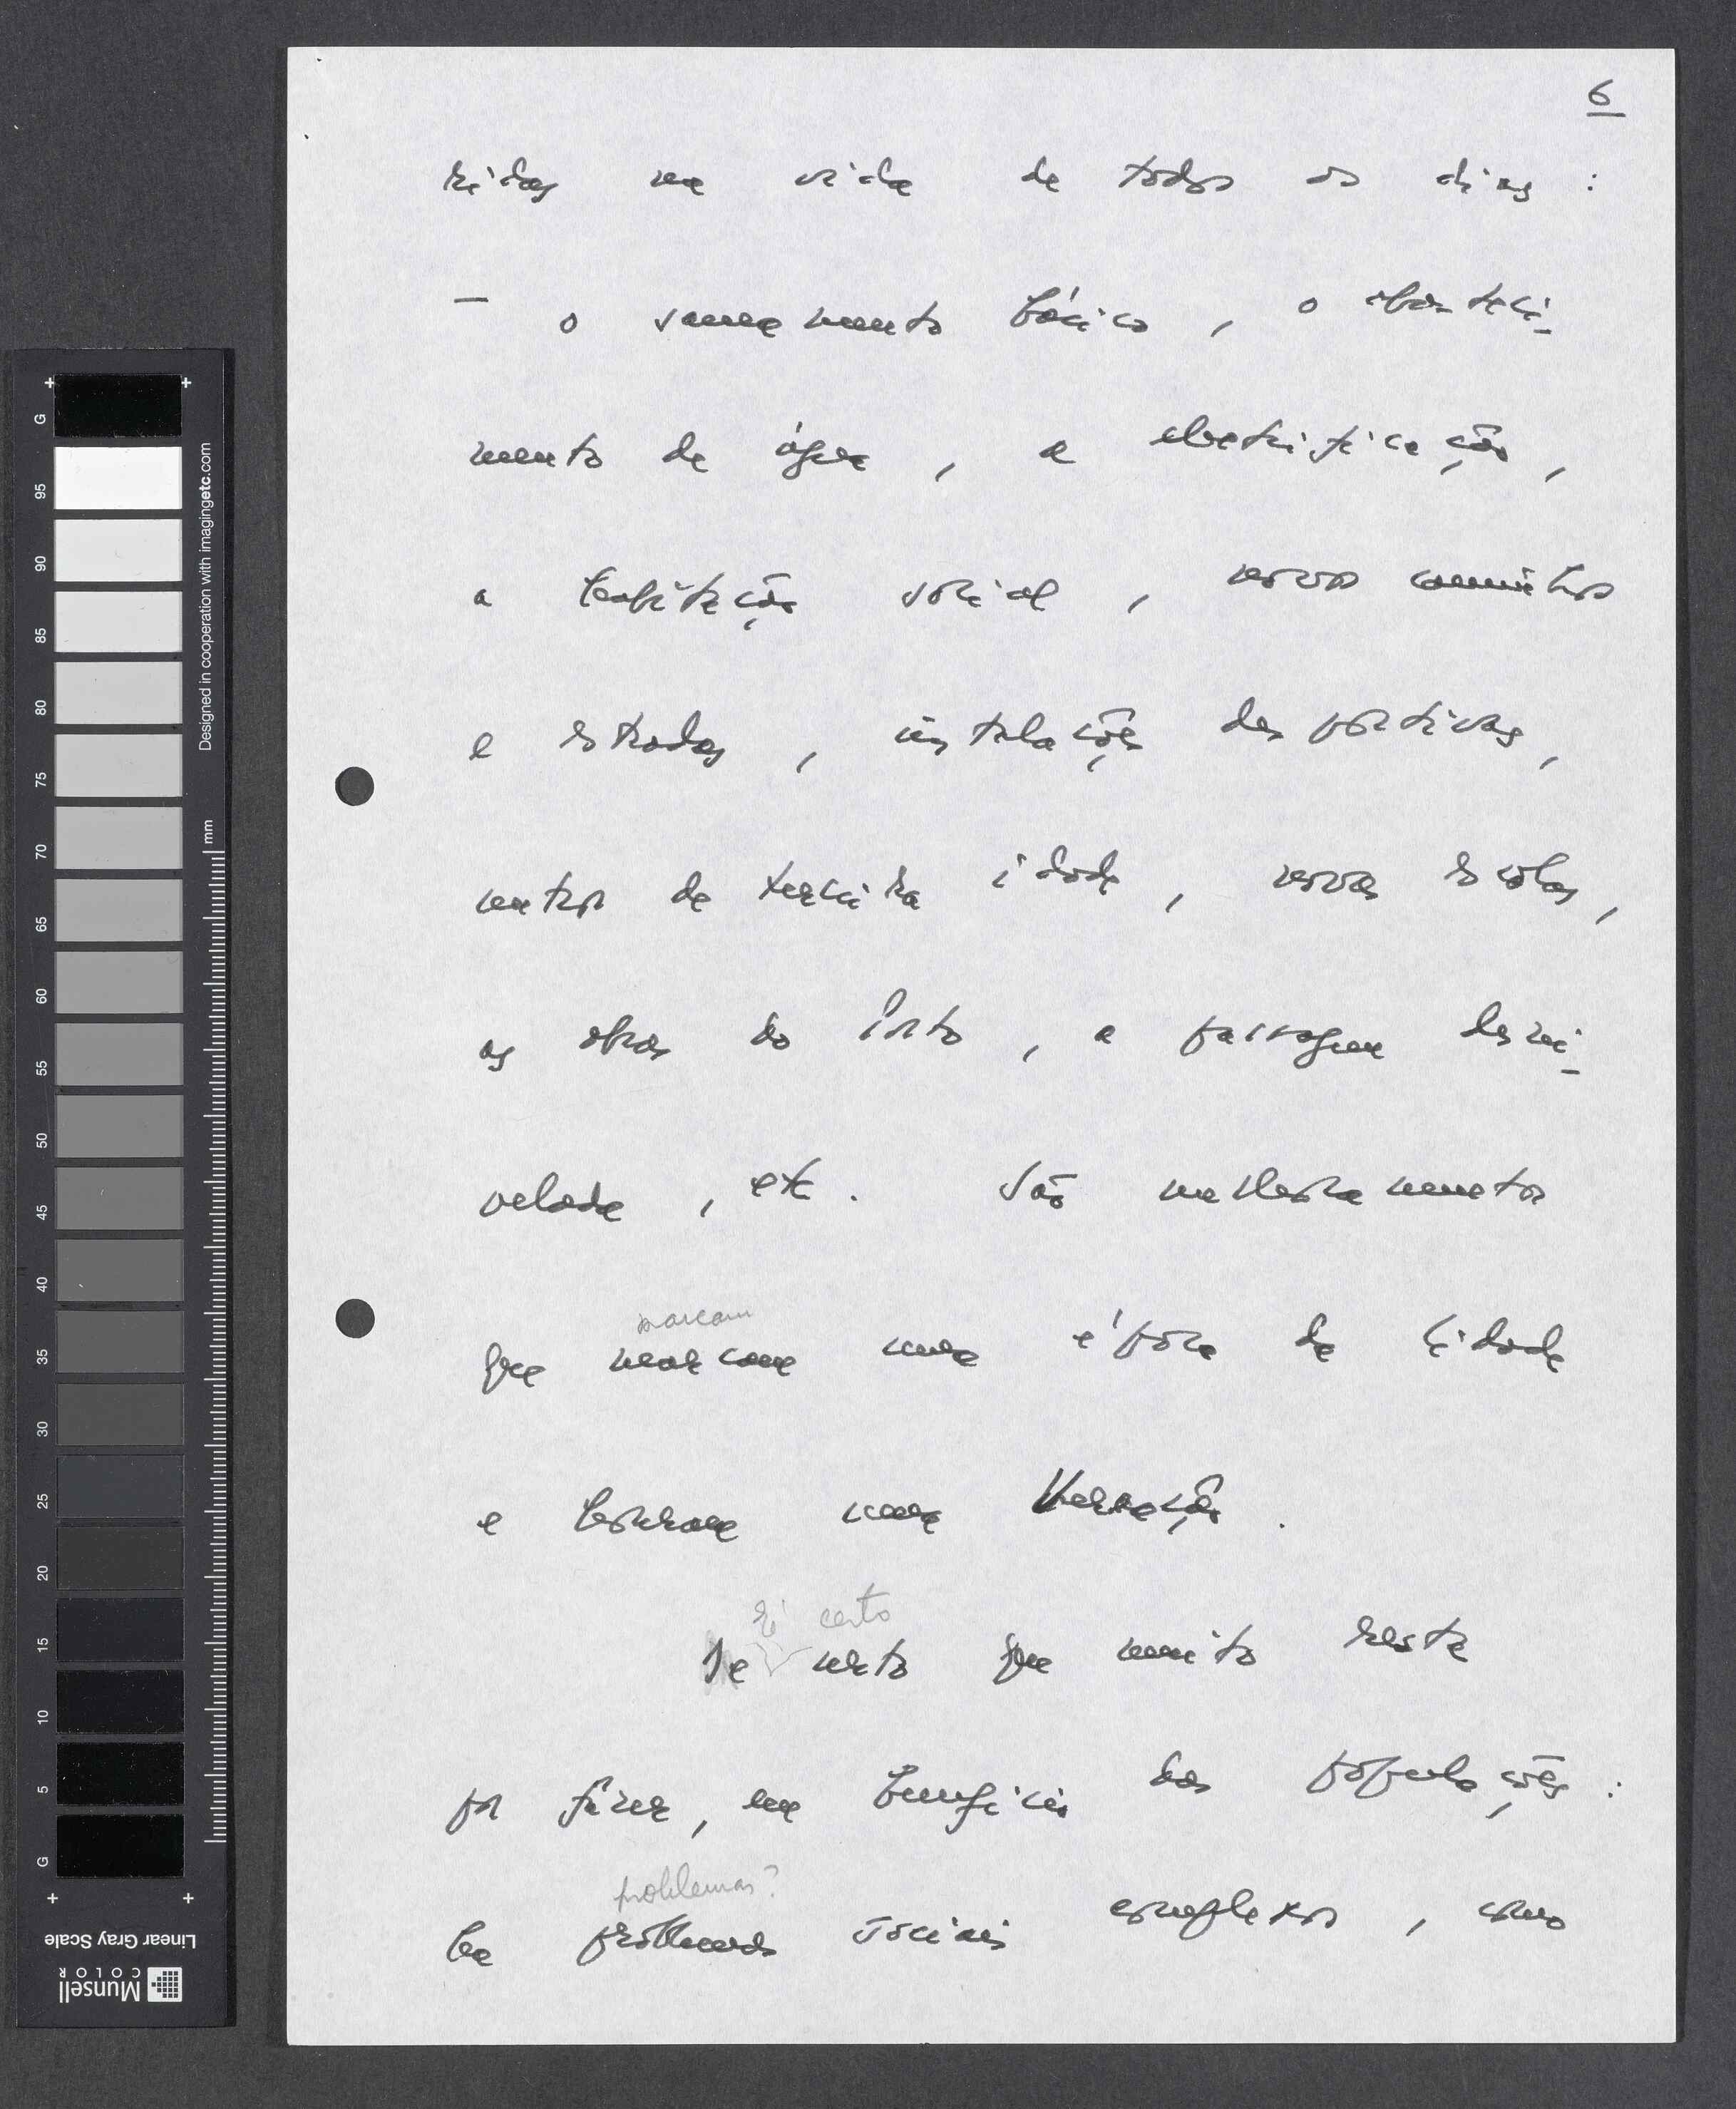 6
ridas na vida de todos os dias :
— o saneamento básico , o abasteci-
mento de água , a electrificação ,
a habitação social , novos caminhos
e estradas , instalações desportivas ,
centros de terceira idade , novas escolas ,
as obras do Porto , a passagem desni-
velada , etc . São melhoramentos
marcam
que marcam uma época da cidade
e honram uma Vereação .
É certo
Se certo que muito resta
por fazer , em benefício das populações :
problemas ?
há problemas sociais complexos , como
G
95
90
85
80
75
70
65
60
55
50
45
40
35
30
25
20
15
10
5
G
Designed in cooperation with imagingetc.com
mm
Linear Gray Scale
Munsell
COLOR